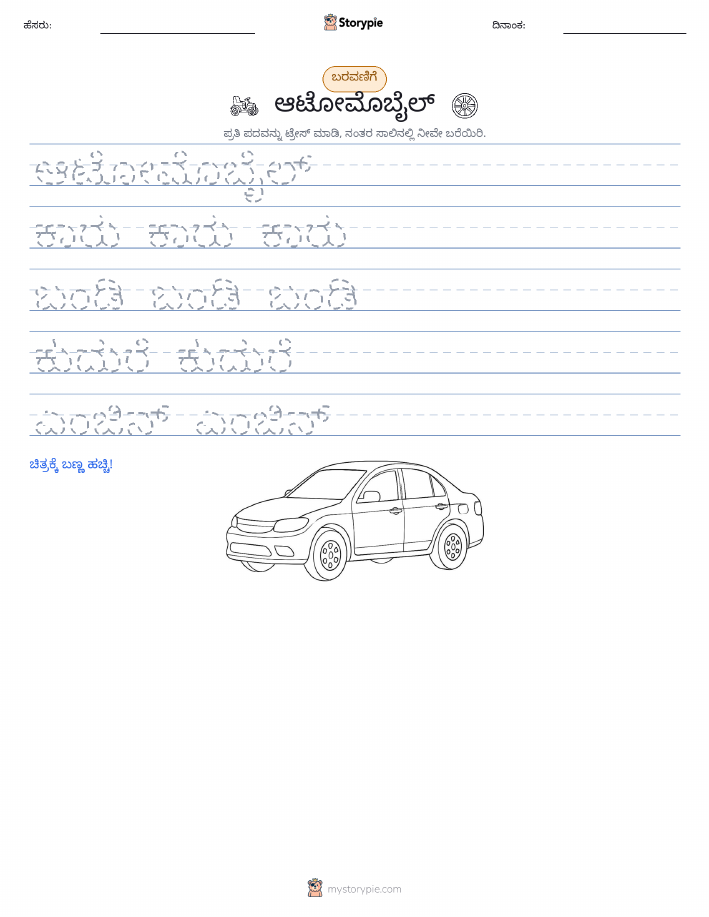 ಹೆಸರು: Storypie ದಿನಾಂಕ:
ಬರವಣಿಗೆ
ಆಟೋಮೊಬೈಲ್
ಪ್ರತಿ ಪದವನ್ನು ಟ್ರೇಸ್ ಮಾಡಿ, ನಂತರ ಸಾಲಿನಲ್ಲಿ ನೀವೇ ಬರೆಯಿರಿ.
ಆಟೋಮೊಬೈಲ್
ಕಾರು ಕಾರು ಕಾರು
ಬಂಡಿ ಬಂಡಿ ಬಂಡಿ
ಕುದುರೆ ಕುದುರೆ
ಎಂಜಿನ್ ಎಂಜಿನ್
ಚಿತ್ರಕ್ಕೆ ಬಣ್ಣ ಹಚ್ಚಿ!
mystorypie.com